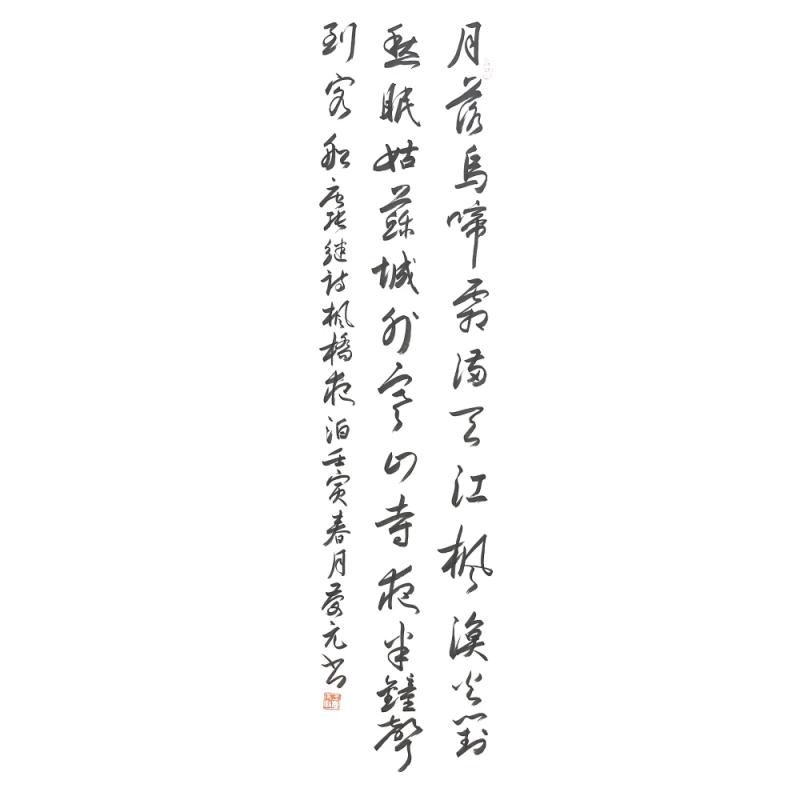 月落烏啼霜滿天江楓漁火對
愁眠姑蘇城外寒山寺夜半鐘聲
到客船唐張継詩楓橋夜泊壬寅春月慶元书